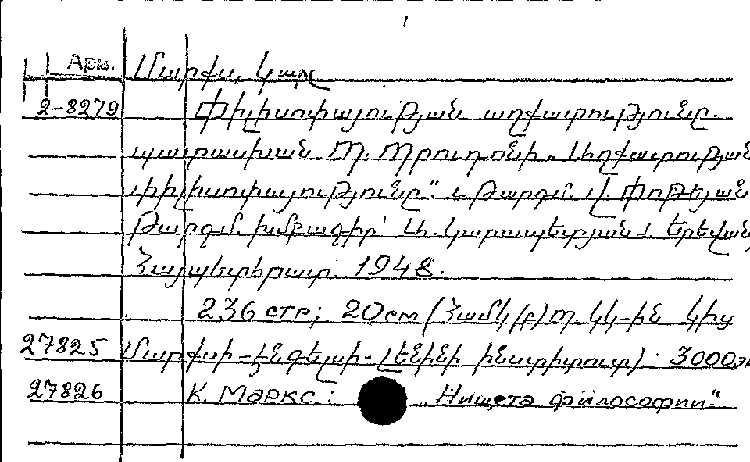 Арм. Մարքս, Կարլ
2-8279 Փիլիսոփայության աղքատությունը.
պատասխան Պ. Պրուդոնի „Աղքատության
փիլիսոփայությունը“: Թարգմ. Փոթեյան
Թարգմ. խմբագիր՝ Կարապետյան: Երևան,
Հայպետհրատ. 1948.
236 стр; 20см (ՀամԿ(բ)Պ ԿԿ-ին կից
27825 Մարքսի-Էնգելսի-Լենինի ինստիտուտ). 3000
27826 К. Маркс: „Нищета философии“